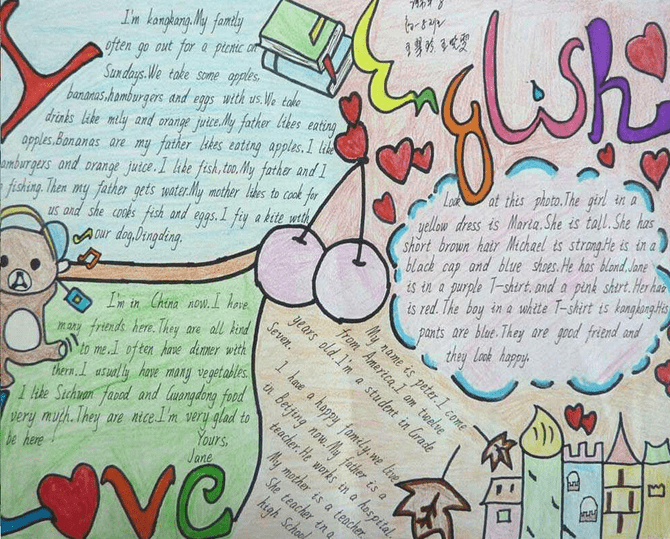 I'm kangkang.My family
often go out for a picnic on
Sundays.We take some apples,
bananas,hamburgers and eggs with us.We take
drinks like mily and orange juice.My father likes eating
apples.Bananas are my father likes eating apples.I like
amburgers and orange juice.I like fish,too.My father and I
fishing.Then my father gets water.My mother likes to cook for
us and she cooks fish and eggs.I fiy a kite with
our dog,Dingding.
English
Look at this photo.The girl in a
yellow dress is Maria.She is tall.She has
short brown hair Michael is strong.He is in a
black cap and blue shoes.He has blond.Jane
is in a purple T-shirt.and a pink shirt.Her hair
is red.The boy in a white T-shirt is kangkong.His
pants are blue.They are good friend and
they look happy.
I'm in China now.I have
many friends here.They are all kind
to me.I often have dinner with
thern.I usually have many vegetables.
I like Sichuan faood and Guangdong food
very much.They are nice.I'm very glad to
be here
Yours,
Jane
My name is peter.I come
from America.I am twelve
years old.I'm a student in Grade
Seven.
I have a happy family.we live
in Beijing now.My father is a
teacher.He works in a hospital.
My mother is a teocher
She teacher in a
high School
LOVE